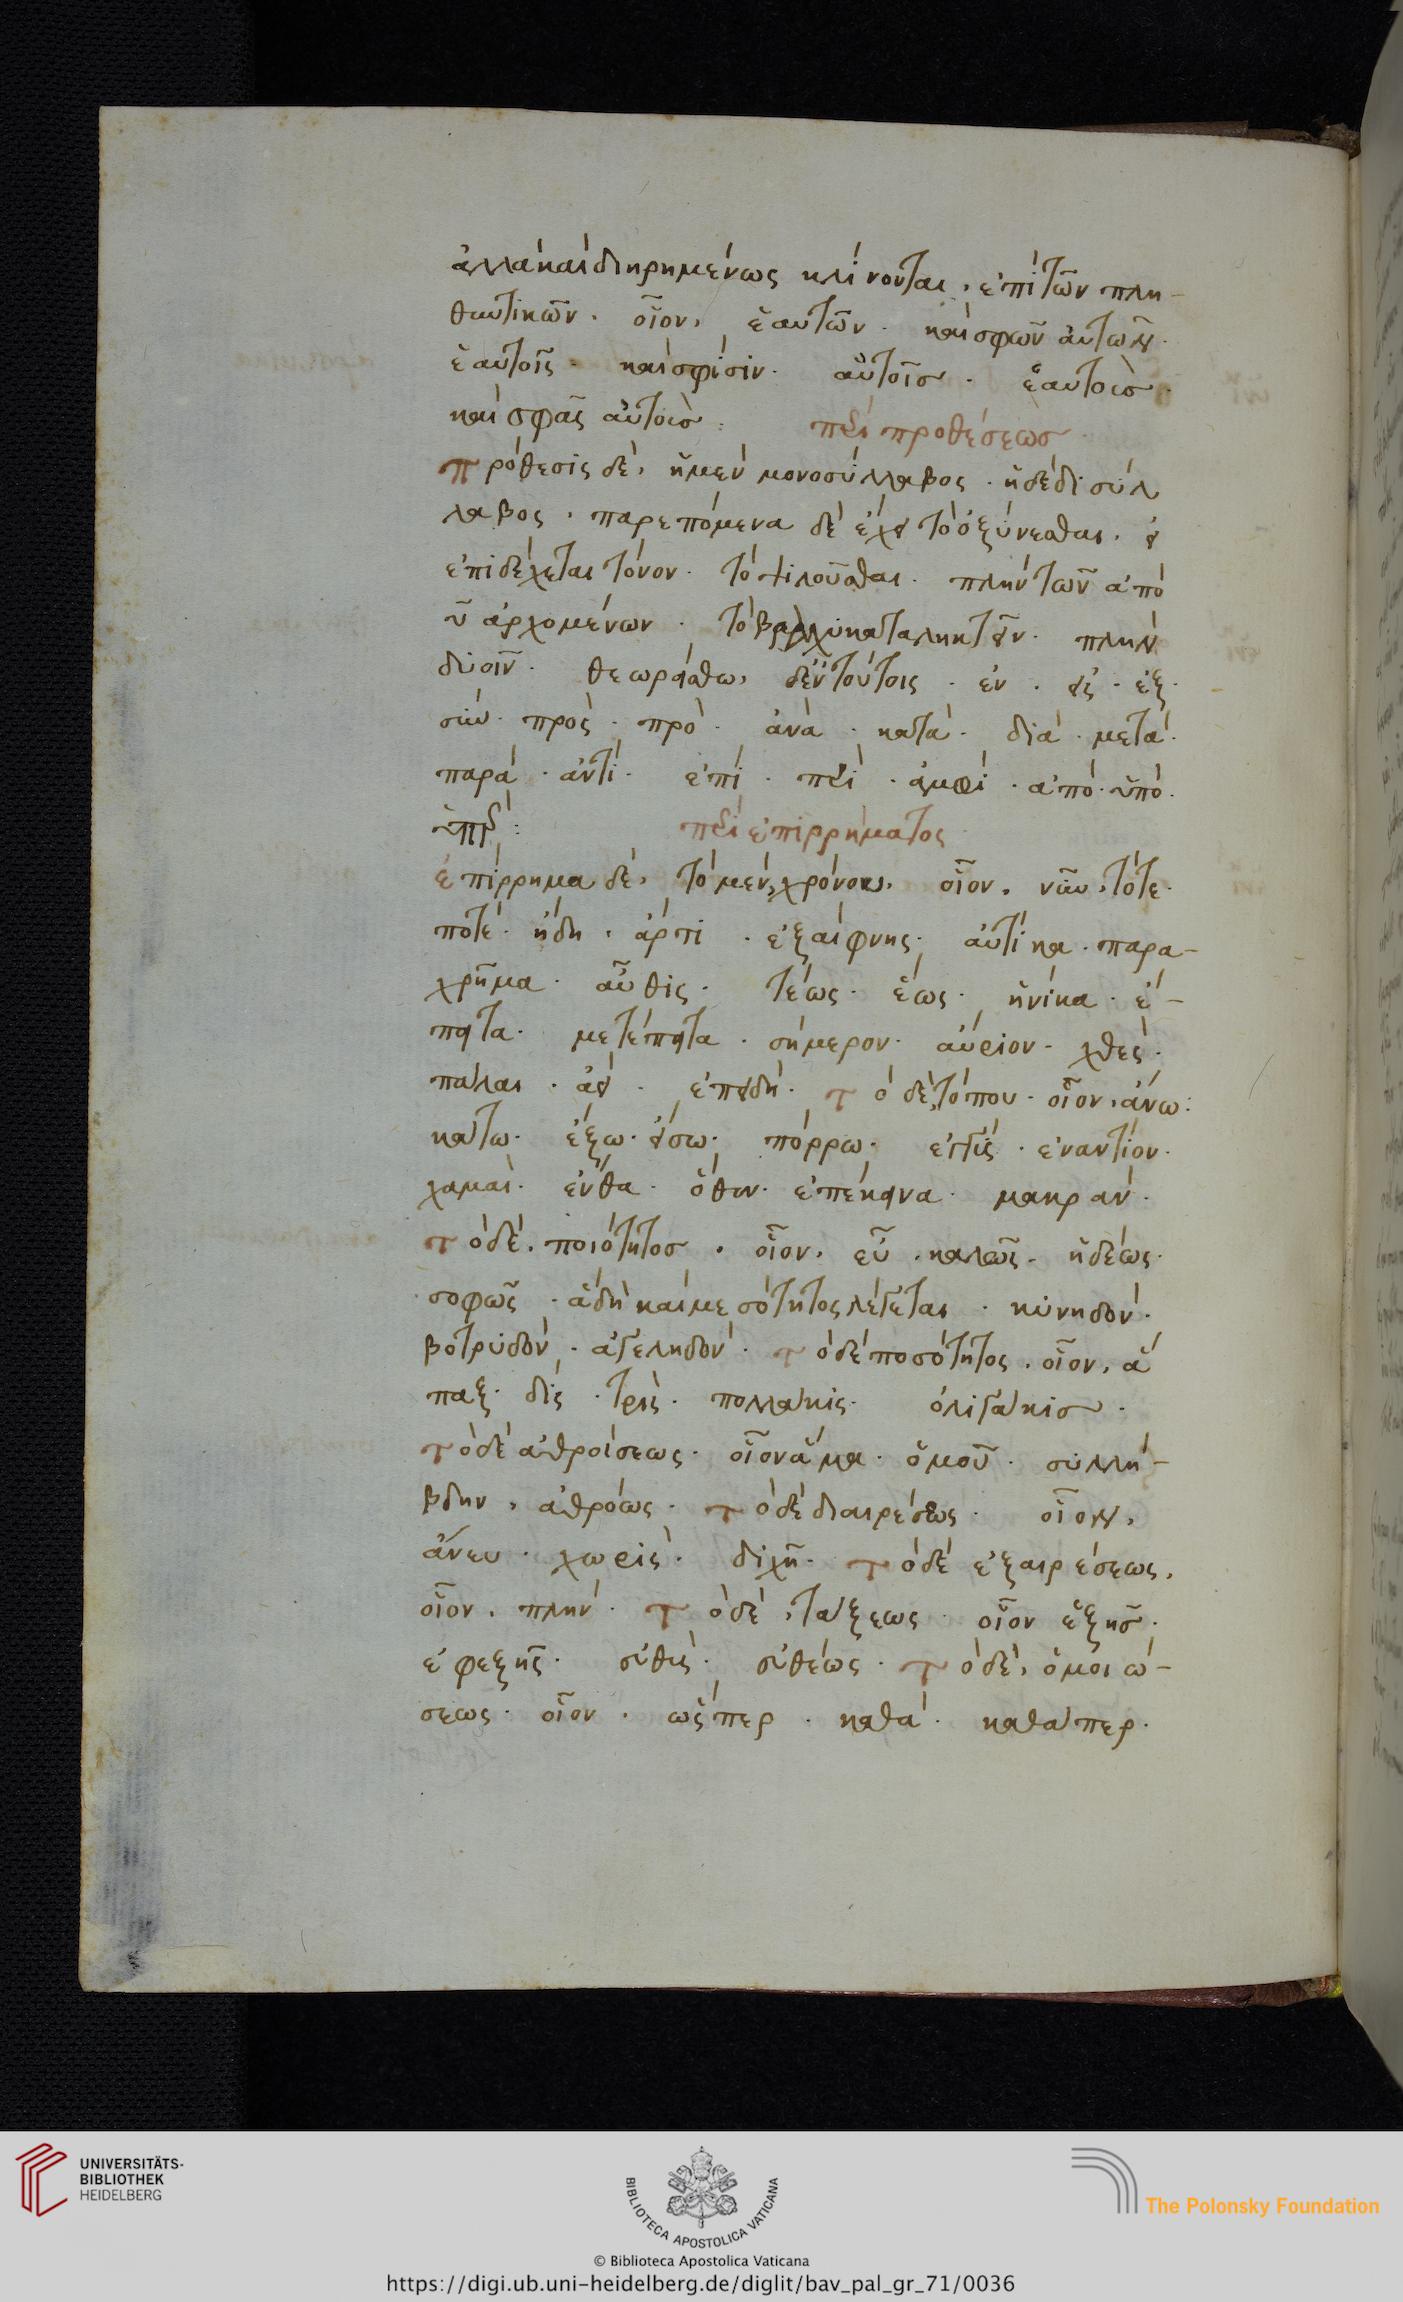 ἀλλὰ καὶ διηρημένως κλίνονται, ἐπὶ τῶν πλη-
θυντικῶν. οἷον, ἑαυτῶν. καὶ σφῶν αὐτῶν.
ἑαυτοῖς. καὶ σφίσιν. αὐτοῖς. ἑαυτοὺς.
καὶ σφᾶς αὐτοὺς:
περὶ προθέσεως
πρόθεσις δὲ, ἡ μὲν μονοσύλλαβος. ἡ δὲ δισύλ
λαβος. παρεπόμενα δὲ ἔχει τὸ ὀξύνεσθαι. εἰ
ἐπιδέχεται τόνον. τὸ ψιλοῦσθαι. πλὴν τῶν ἀπὸ
υ ἀρχομένων. τὸ βραχυκαταληκτεῖν. πλὴν
δυοῖν. θεωρείσθω, δ' ἐν τούτοις. ἐν. εἰς. ἐξ.
σὺν. πρὸς. πρὸ. ἀνὰ. κατὰ. διὰ. μετὰ.
παρὰ. ἀντὶ. ἐπὶ. περὶ. ἀμφὶ. ἀπὸ. ὑπὸ.
ὑπὲρ:
περὶ ἐπιρρήματος
ἐπίρρημα δὲ, τὸ μὲν, χρόνου, οἷον, νῦν, τότε.
ποτὲ. ἤδη. ἄρτι. ἐξαίφνης. αὐτίκα. παρα-
χρῆμα. αὖθις. τέως. ἕως. ἡνίκα. ἔ-
πειτα. μετέπειτα. σήμερον. αὔριον. χθὲς.
πάλαι. ἀεὶ. ἐπειδὴ. τὸ δὲ, τόπου. οἷον, ἄνω:
κάτω. ἔξω. εἴσω. πόρρω. ἐγγὺς. ἐναντίον.
χαμαὶ. ἔνθα. ὅθεν. ἐπέκεινα. μακρὰν.
τὸ δὲ, ποιότητος. οἷον, εὖ. καλῶς. ἡδέως.
σοφῶς. ἃ δὴ καὶ μεσότητος λέγεται. κυνηδὸν.
βοτρυδὸν. ἀγεληδὸν. τὸ δὲ ποσότητος. οἷον, ἅ
παξ. δὶς. τρὶς. πολλάκις. ὀλιγάκις.
τὸ δὲ ἀθροίσεως. οἷον ἅμα. ὁμοῦ. συλλή-
βδην, ἀθρόως. τὸ δὲ διαιρέσεως. οἷον,
ἄνευ. χωρὶς. διχῆ. τὸ δὲ ἐξαιρέσεως,
οἷον. πλὴν. τὸ δὲ, τάξεως. οἷον ἑξῆς.
ἐφεξῆς. εὐθὺς. εὐθέως. τὸ δὲ, ὁμοιώ-
σεως. οἷον. ὥσπερ. καθὰ. καθάπερ.
UNIVERSITÄTS-
BIBLIOTHEK
HEIDELBERG
BIBLIOTECA APOSTOLICA VATICANA
The Polonsky Foundation
© Biblioteca Apostolica Vaticana
https://digi.ub.uni-heidelberg.de/diglit/bav_pal_gr_71/0036